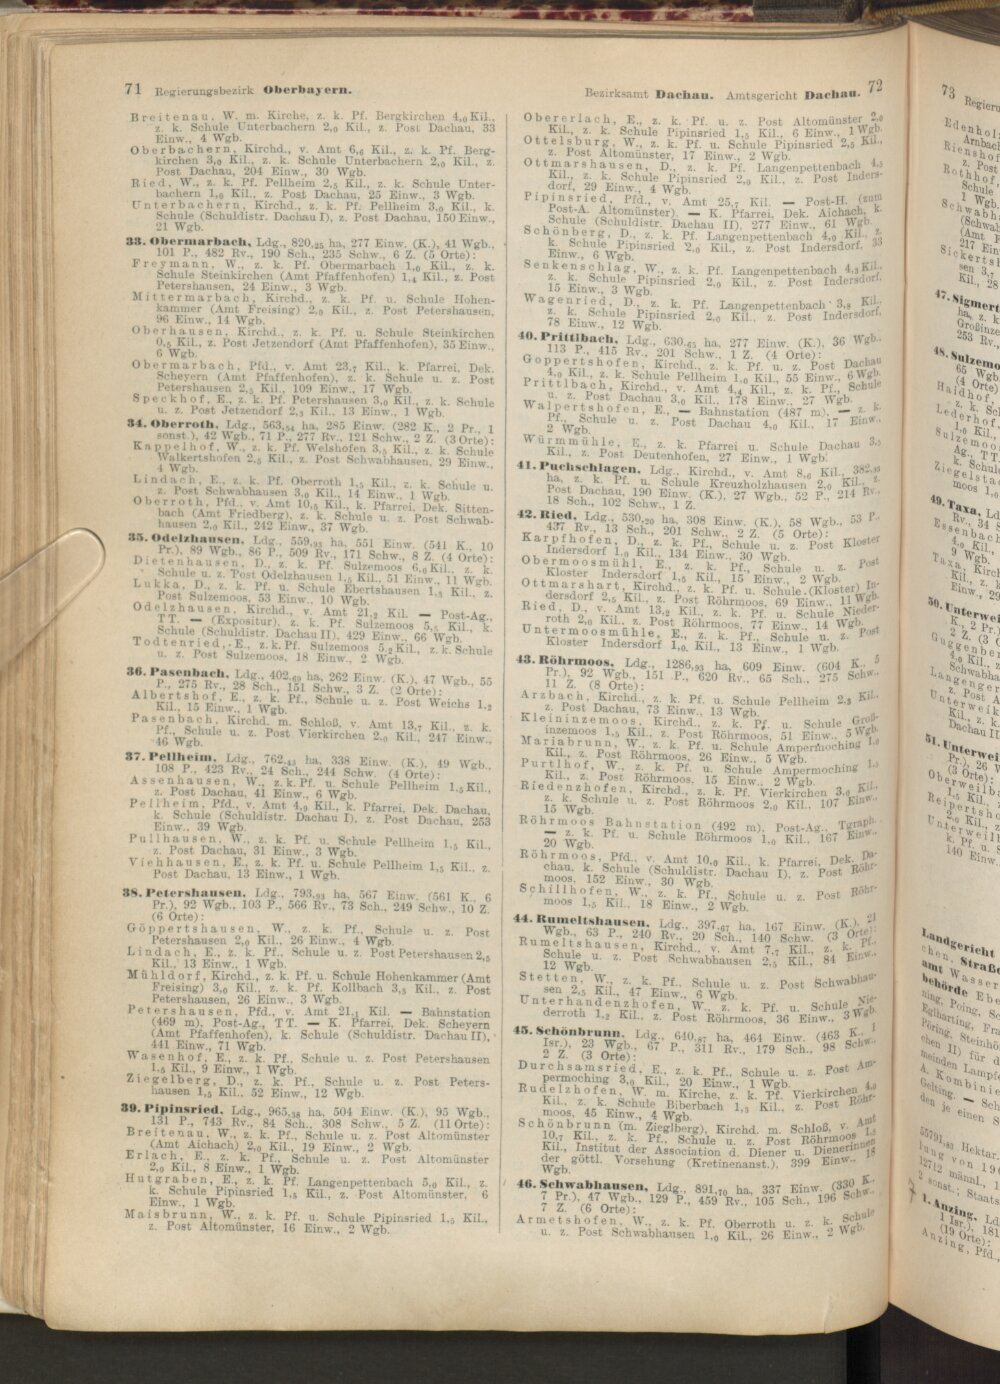 71 Regierungsbezirk Oberbayern.
Breitenau, W. m. Kirche, z. k. Pf. Bergkirchen 4,0 Kil.,
z. k. Schule Unterbachern 2,0 Kil., z. Post Dachau, 33
Einw., 4 Wgb.
Oberbachern, Kirchd., v. Amt 6,6 Kil., z. k. Pf. Berg-
kirchen 3,0 Kil., z. k. Schule Unterbachern 2,0 Kil., z.
Post Dachau, 204 Einw., 30 Wgb.
Ried, W., z. k. Pf. Pellheim 2,5 Kil., z. k. Schule Unter-
bachern 1,0 Kil., z. Post Dachau, 25 Einw., 3 Wgb.
Unterbachern, Kirchd., z. k. Pf. Pellheim 3,0 Kil., k.
Schule (Schuldistr. Dachau I), z. Post Dachau, 150 Einw.,
21 Wgb.
33. Obermarbach, Ldg., 820,25 ha, 277 Einw. (K.), 41 Wgb.,
101 P., 482 Rv., 190 Sch., 235 Schw., 6 Z. (5 Orte):
Freymann, W., z. k. Pf. Obermarbach 1,0 Kil., z. k.
Schule Steinkirchen (Amt Pfaffenhofen) 1,4 Kil., z. Post
Petershausen, 24 Einw., 3 Wgb.
Mittermarbach, Kirchd., z. k. Pf. u. Schule Hohen-
kammer (Amt Freising) 2,0 Kil., z. Post Petershausen,
96 Einw., 14 Wgb.
Oberhausen, Kirchd., z. k. Pf. u. Schule Steinkirchen
0,5 Kil., z. Post Jetzendorf (Amt Pfaffenhofen), 35 Einw.,
6 Wgb.
Obermarbach, Pfd., v. Amt 23,7 Kil., k. Pfarrei, Dek.
Scheyern (Amt Pfaffenhofen), z. k. Schule u. z. Post
Petershausen 2,5 Kil., 109 Einw., 17 Wgb.
Speckhof, E., z. k. Pf. Petershausen 3,0 Kil., z. k. Schule
u. z. Post Jetzendorf 2,3 Kil., 13 Einw., 1 Wgb.
34. Oberroth, Ldg., 563,54 ha, 285 Einw. (282 K., 2 Pr., 1
sonst.), 42 Wgb., 71 P., 277 Rv., 121 Schw., 2 Z. (3 Orte):
Kappelhof, W., z. k. Pf. Welshofen 3,5 Kil., z. k. Schule
Walkertshofen 2,5 Kil., z. Post Schwabhausen, 29 Einw.,
4 Wgb.
Lindach, E., z. k. Pf. Oberroth 1,5 Kil., z. k. Schule u.
z. Post Schwabhausen 3,0 Kil., 14 Einw., 1 Wgb.
Oberroth, Pfd., v. Amt 10,5 Kil., k. Pfarrei, Dek. Sitten-
bach (Amt Friedberg), z. k. Schule u. z. Post Schwab-
hausen 2,0 Kil., 242 Einw., 37 Wgb.
35. Odelzhausen, Ldg., 559,93 ha, 551 Einw. (541 K., 10
Pr.), 89 Wgb., 86 P., 509 Rv., 171 Schw., 8 Z. (4 Orte):
Dietenhausen, D., z. k. Pf. Sulzemoos 6,0 Kil., z. k.
Schule u. z. Post Odelzhausen 1,5 Kil., 51 Einw., 11 Wgb.
Lukka, D., z. k. Pf. u. Schule Ebertshausen 1,3 Kil., z.
Post Sulzemoos, 53 Einw., 10 Wgb.
Odelzhausen, Kirchd., v. Amt 21,2 Kil. — Post-Ag.,
TT. — (Expositur), z. k. Pf. Sulzemoos 5,5 Kil., k.
Schule (Schuldistr. Dachau II), 429 Einw., 66 Wgb.
Todtenried, E., z. k. Pf. Sulzemoos 5,2 Kil., z. k. Schule
u. z. Post Sulzemoos, 18 Einw., 2 Wgb.
36. Pasenbach, Ldg., 402,69 ha, 262 Einw. (K.), 47 Wgb., 55
P., 275 Rv., 28 Sch., 151 Schw., 3 Z. (2 Orte):
Albertshof, E., z. k. Pf., Schule u. z. Post Weichs 1,2
Kil., 15 Einw., 1 Wgb.
Pasenbach, Kirchd. m. Schloß, v. Amt 13,7 Kil., z. k.
Pf., Schule u. z. Post Vierkirchen 2,0 Kil., 247 Einw.,
46 Wgb.
37. Pellheim, Ldg., 762,43 ha, 338 Einw. (K.), 49 Wgb.,
108 P., 423 Rv., 24 Sch., 244 Schw. (4 Orte):
Assenhausen, W., z. k. Pf. u. Schule Pellheim 1,5 Kil.,
z. Post Dachau, 41 Einw., 6 Wgb.
Pellheim, Pfd., v. Amt 4,9 Kil., k. Pfarrei, Dek. Dachau,
k. Schule (Schuldistr. Dachau I), z. Post Dachau, 253
Einw., 39 Wgb.
Pullhausen, W., z. k. Pf. u. Schule Pellheim 1,5 Kil.,
z. Post Dachau, 31 Einw., 3 Wgb.
Viehhausen, E., z. k. Pf. u. Schule Pellheim 1,5 Kil., z.
Post Dachau, 13 Einw., 1 Wgb.
38. Petershausen, Ldg., 793,93 ha, 567 Einw. (561 K., 6
Pr.), 92 Wgb., 103 P., 566 Rv., 73 Sch., 249 Schw., 10 Z.
(6 Orte):
Göppertshausen, W., z. k. Pf., Schule u. z. Post
Petershausen 2,0 Kil., 26 Einw., 4 Wgb.
Lindach, E., z. k. Pf., Schule u. z. Post Petershausen 2,5
Kil., 13 Einw., 1 Wgb.
Mühldorf, Kirchd., z. k. Pf. u. Schule Hohenkammer (Amt
Freising) 3,0 Kil., z. k. Pf. Kollbach 3,5 Kil., z. Post
Petershausen, 26 Einw., 3 Wgb.
Petershausen, Pfd., v. Amt 21,1 Kil. — Bahnstation
(469 m), Post-Ag., TT. — K. Pfarrei, Dek. Scheyern
(Amt Pfaffenhofen), k. Schule (Schuldistr. Dachau II),
441 Einw., 71 Wgb.
Wasenhof, E., z. k. Pf., Schule u. z. Post Petershausen
1,5 Kil., 9 Einw., 1 Wgb.
Ziegelberg, D., z. k. Pf., Schule u. z. Post Peters-
hausen 1,5 Kil., 52 Einw., 12 Wgb.
39. Pipinsried, Ldg., 965,38 ha, 504 Einw. (K.), 95 Wgb.,
131 P., 743 Rv., 84 Sch., 308 Schw., 5 Z. (11 Orte):
Breitenau, W., z. k. Pf., Schule u. z. Post Altomünster
(Amt Aichach) 2,0 Kil., 19 Einw., 2 Wgb.
Erlach, E., z. k. Pf., Schule u. z. Post Altomünster
2,0 Kil., 8 Einw., 1 Wgb.
Hutgraben, E., z. k. Pf. Langenpettenbach 5,0 Kil., z.
k. Schule Pipinsried 1,5 Kil., z. Post Altomünster, 6
Einw., 1 Wgb.
Maisbrunn, W., z. k. Pf. u. Schule Pipinsried 1,5 Kil.,
z. Post Altomünster, 16 Einw., 2 Wgb.
Bezirksamt Dachau. Amtsgericht Dachau. 72
Obererlach, E., z. k. Pf. u. z. Post Altomünster 2,0
Kil., z. k. Schule Pipinsried 1,5 Kil., 6 Einw., 1 Wgb.
Ottelsburg, W., z. k. Pf. u. Schule Pipinsried 2,5 Kil.,
z. Post Altomünster, 17 Einw., 2 Wgb.
Ottmarshausen, D., z. k. Pf. Langenpettenbach 4,5
Kil., z. k. Schule Pipinsried 2,0 Kil., z. Post Inders-
dorf, 29 Einw., 4 Wgb.
Pipinsried, Pfd., v. Amt 25,7 Kil. — Post-H. (zum
Post-A. Altomünster). — K. Pfarrei, Dek. Aichach, k.
Schule (Schuldistr. Dachau II), 277 Einw., 61 Wgb.
Schönberg, D., z. k. Pf. Langenpettenbach 4,0 Kil., z.
k. Schule Pipinsried 2,0 Kil., z. Post Indersdorf, 33
Einw., 6 Wgb.
Senkenschlag, W., z. k. Pf. Langenpettenbach 4,3 Kil.,
z. k. Schule Pipinsried 2,0 Kil., z. Post Indersdorf,
15 Einw., 3 Wgb.
Wagenried, D., z. k. Pf. Langenpettenbach 3,8 Kil.,
z. k. Schule Pipinsried 2,0 Kil., z. Post Indersdorf,
78 Einw., 12 Wgb.
40. Prittlbach, Ldg., 630,65 ha, 277 Einw. (K.), 36 Wgb.,
113 P., 415 Rv., 201 Schw., 1 Z. (4 Orte):
Goppertshofen, Kirchd., z. k. Pf. u. z. Post Dachau
4,0 Kil., z. k. Schule Pellheim 1,0 Kil., 55 Einw., 6 Wgb.
Prittlbach, Kirchd., v. Amt 4,4 Kil., z. k. Pf., Schule
u. z. Post Dachau 3,0 Kil., 178 Einw., 27 Wgb.
Walpertshofen, E., — Bahnstation (487 m), — z. k.
Pf., Schule u. z. Post Dachau 4,0 Kil., 17 Einw.,
2 Wgb.
Würmmühle, E., z. k. Pfarrei u. Schule Dachau 3,5
Kil., z. Post Deutenhofen, 27 Einw., 1 Wgb.
41. Puchschlagen, Ldg., Kirchd., v. Amt 8,6 Kil., 382,95
ha, z. k. Pf. u. Schule Kreuzholzhausen 2,0 Kil., z.
Post Dachau, 190 Einw. (K.), 27 Wgb., 52 P., 214 Rv.,
18 Sch., 102 Schw., 1 Z.
42. Ried, Ldg., 530,20 ha, 308 Einw. (K.), 58 Wgb., 53 P.,
437 Rv., 13 Sch., 201 Schw., 2 Z. (5 Orte):
Karpfhofen, D., z. k. Pf., Schule u. z. Post Kloster
Indersdorf 1,0 Kil., 134 Einw., 30 Wgb.
Obermoosmühl, E., z. k. Pf., Schule u. z. Post
Kloster Indersdorf 1,5 Kil., 15 Einw., 2 Wgb.
Ottmarshart, Kirchd., z. k. Pf. u. Schule (Kloster) In-
dersdorf 2,5 Kil., z. Post Röhrmoos, 69 Einw., 11 Wgb.
Ried, D., v. Amt 13,2 Kil., z. k. Pf. u. Schule Nieder-
roth 2,0 Kil., z. Post Röhrmoos, 77 Einw., 14 Wgb.
Untermoosmühle, E., z. k. Pf., Schule u. z. Post
Kloster Indersdorf 1,0 Kil., 13 Einw., 1 Wgb.
43. Röhrmoos, Ldg., 1286,93 ha, 609 Einw. (604 K., 5
Pr.), 92 Wgb., 151 P., 620 Rv., 65 Sch., 275 Schw.,
11 Z. (8 Orte):
Arzbach, Kirchd., z. k. Pf. u. Schule Pellheim 2,3 Kil.,
z. Post Dachau, 73 Einw., 13 Wgb.
Kleininzemoos, Kirchd., z. k. Pf. u. Schule Groß-
inzemoos 1,5 Kil., z. Post Röhrmoos, 51 Einw., 5 Wgb.
Mariabrunn, W., z. k. Pf. u. Schule Ampermoching 1,0
Kil., z. Post Röhrmoos, 26 Einw., 5 Wgb.
Purtlhof, W., z. k. Pf. u. Schule Ampermoching 1,5
Kil., z. Post Röhrmoos, 15 Einw., 2 Wgb.
Riedenzhofen, Kirchd., z. k. Pf. Vierkirchen 3,0 Kil.,
z. k. Schule u. z. Post Röhrmoos 2,0 Kil., 107 Einw.,
15 Wgb.
Röhrmoos Bahnstation (492 m), Post-Ag., Tgraph.,
— z. k. Pf. u. Schule Röhrmoos 1,0 Kil., 167 Einw.,
20 Wgb.
Röhrmoos, Pfd., v. Amt 10,0 Kil., k. Pfarrei, Dek. Da-
chau, k. Schule (Schuldistr. Dachau I), z. Post Röhr-
moos, 152 Einw., 30 Wgb.
Schillhofen, W., z. k. Pf., Schule u. z. Post Röhr-
moos 1,5 Kil., 18 Einw., 2 Wgb.
44. Rumeltshausen, Ldg., 397,67 ha, 167 Einw. (K.), 21
Wgb., 63 P., 240 Rv., 20 Sch., 140 Schw. (3 Orte):
Rumeltshausen, Kirchd., v. Amt 7,7 Kil., z. k. Pf.,
Schule u. z. Post Schwabhausen 2,5 Kil., 84 Einw.,
12 Wgb.
Stetten, W., z. k. Pf., Schule u. z. Post Schwabhau-
sen 2,5 Kil., 47 Einw., 6 Wgb.
Unterhandenzhofen, W., z. k. Pf. u. Schule Nie-
derroth 1,2 Kil., z. Post Röhrmoos, 36 Einw., 3 Wgb.
45. Schönbrunn, Ldg., 640,87 ha, 464 Einw. (463 K., 1
Isr.), 23 Wgb., 67 P., 311 Rv., 179 Sch., 98 Schw.,
2 Z. (3 Orte):
Durchsamsried, E., z. k. Pf., Schule u. z. Post Am-
permoching 3,0 Kil., 20 Einw., 1 Wgb.
Rudelzhofen, W. m. Kirche, z. k. Pf. Vierkirchen 4,0
Kil., z. k. Schule Biberbach 1,3 Kil., z. Post Röhr-
moos, 45 Einw., 4 Wgb.
Schönbrunn (m. Zieglberg), Kirchd. m. Schloß, v. Amt
10,7 Kil., z. k. Pf., Schule u. z. Post Röhrmoos 1,5
Kil., Institut der Association d. Diener u. Dienerinnen
der göttl. Vorsehung (Kretinenanst.), 399 Einw., 18
Wgb.
46. Schwabhausen, Ldg., 891,70 ha, 337 Einw. (330 K.,
7 Pr.), 47 Wgb., 129 P., 459 Rv., 105 Sch., 196 Schw.,
7 Z. (6 Orte):
Armetshofen, W., z. k. Pf. Oberroth u. z. k. Schule
u. z. Post Schwabhausen 1,0 Kil., 26 Einw., 2 Wgb.
73 Regieru
Edenhol
Arnbach
Rienshof
z. Post
Rothhof
Schule
1 Wgb.
Schwabh
(Schwab
(Amt P
217 Ein
Sickerts
sen 3,7
Kil., 28
47. Sigmert
ha, z. k
Großinze
253 Rv.,
48. Sulzemo
65 Wgb
(4 Orte)
Haidhof,
z. k. Sc
Lederhof,
1,0 Kil.,
Sulzemoo
Ag., TT
k. Schul
Ziegelsta
moos 1,0
49. Taxa, Ld
Rv., 34 S
Essenbach
4,0 Kil.,
9 Wgb.
Taxa, Kirch
Kil., z. k
Einw., 29
50. Unterwei
K., 2 Pr.
2 Z. (3 O
Guggenber
4,0 Kil., z
Schwabha
Langenger
z. Post A
Unterweik
Kil., z. k
Dachau II
51. Unterwei
Pr.), 26 W
(3 Orte):
Oberweilb
1,5 Kil.,
Reipertsho
2,0 Kil., z
Unterweil
k. Pf. u. S
140 Einw.
Landgericht
chen, Straße
amt Wasser
behörde Ebe
ning, Poing, Sc
Eglharting, Fra
Pöring, Steinhö
chen II) für d
meinden Lampfe
A. Kombinie
Gelting. — Sch
den je einen S
55791,83 Hektar,
lung von 190
12712 männl., 1
2 sonst.; Staats
1. Anzing, Ld
1 Isr.), 181
(19 Orte):
Anzing, Pfd.,